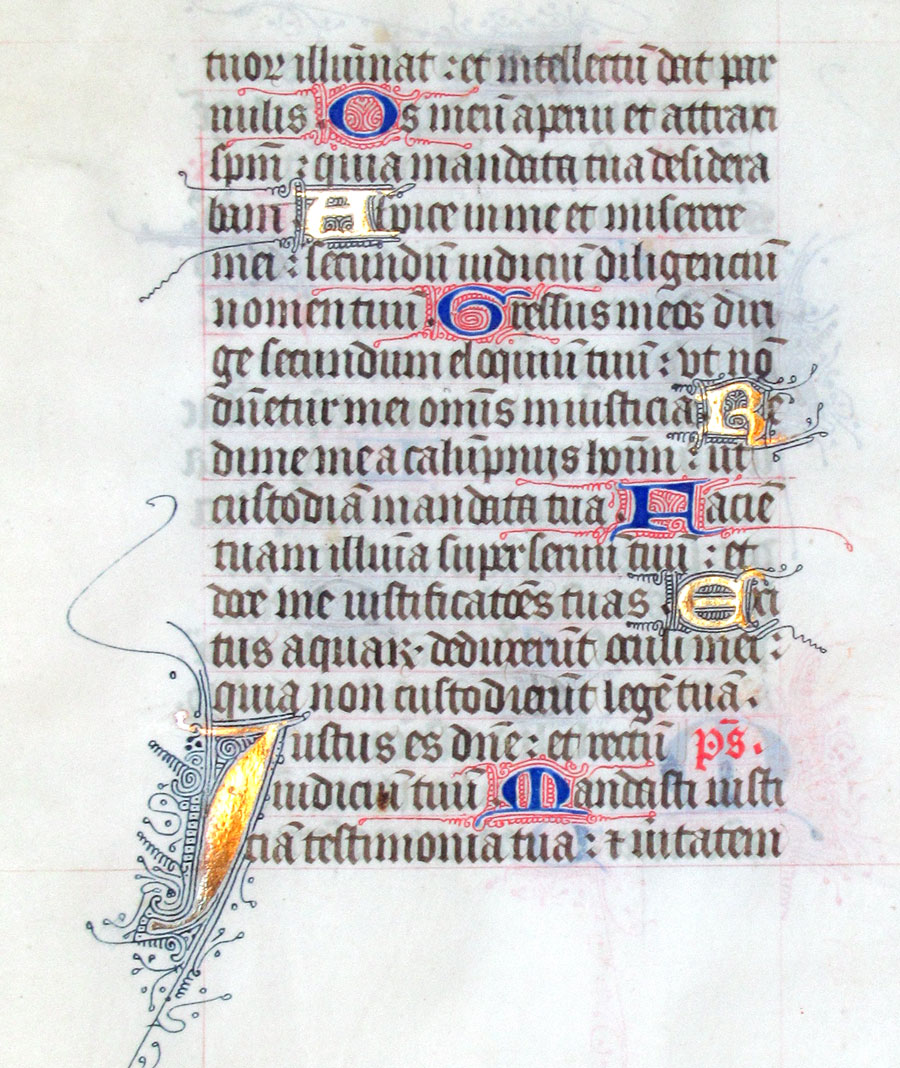 tuor illuīnat : et intellectū dat par
uulis Os meū aperui et attraxi
spm̄ : quia mandata tua desidera
bam Aspice in me et miserere
mei : secundū iudiciū diligenciū
nomen tuū Gressus meos diri
ge secundum eloquiū tuū : ut nō
dn̄etur mei omīs iniusticia Re
dime me a calūpniis hoīm : ut
custodiā mandata tua Faciē
tuam illuīa super seruū tuū : et
doce me iustificatōes tuas Exi
tus aquaꝝ deduxerūt oculi mei :
quia non custodierūt legē tuā .
Iustus es dn̄e : et rectū ps̄ .
iudiciū tuū Mandasti iusti
ciā testimonia tua : ⁊ uitatem